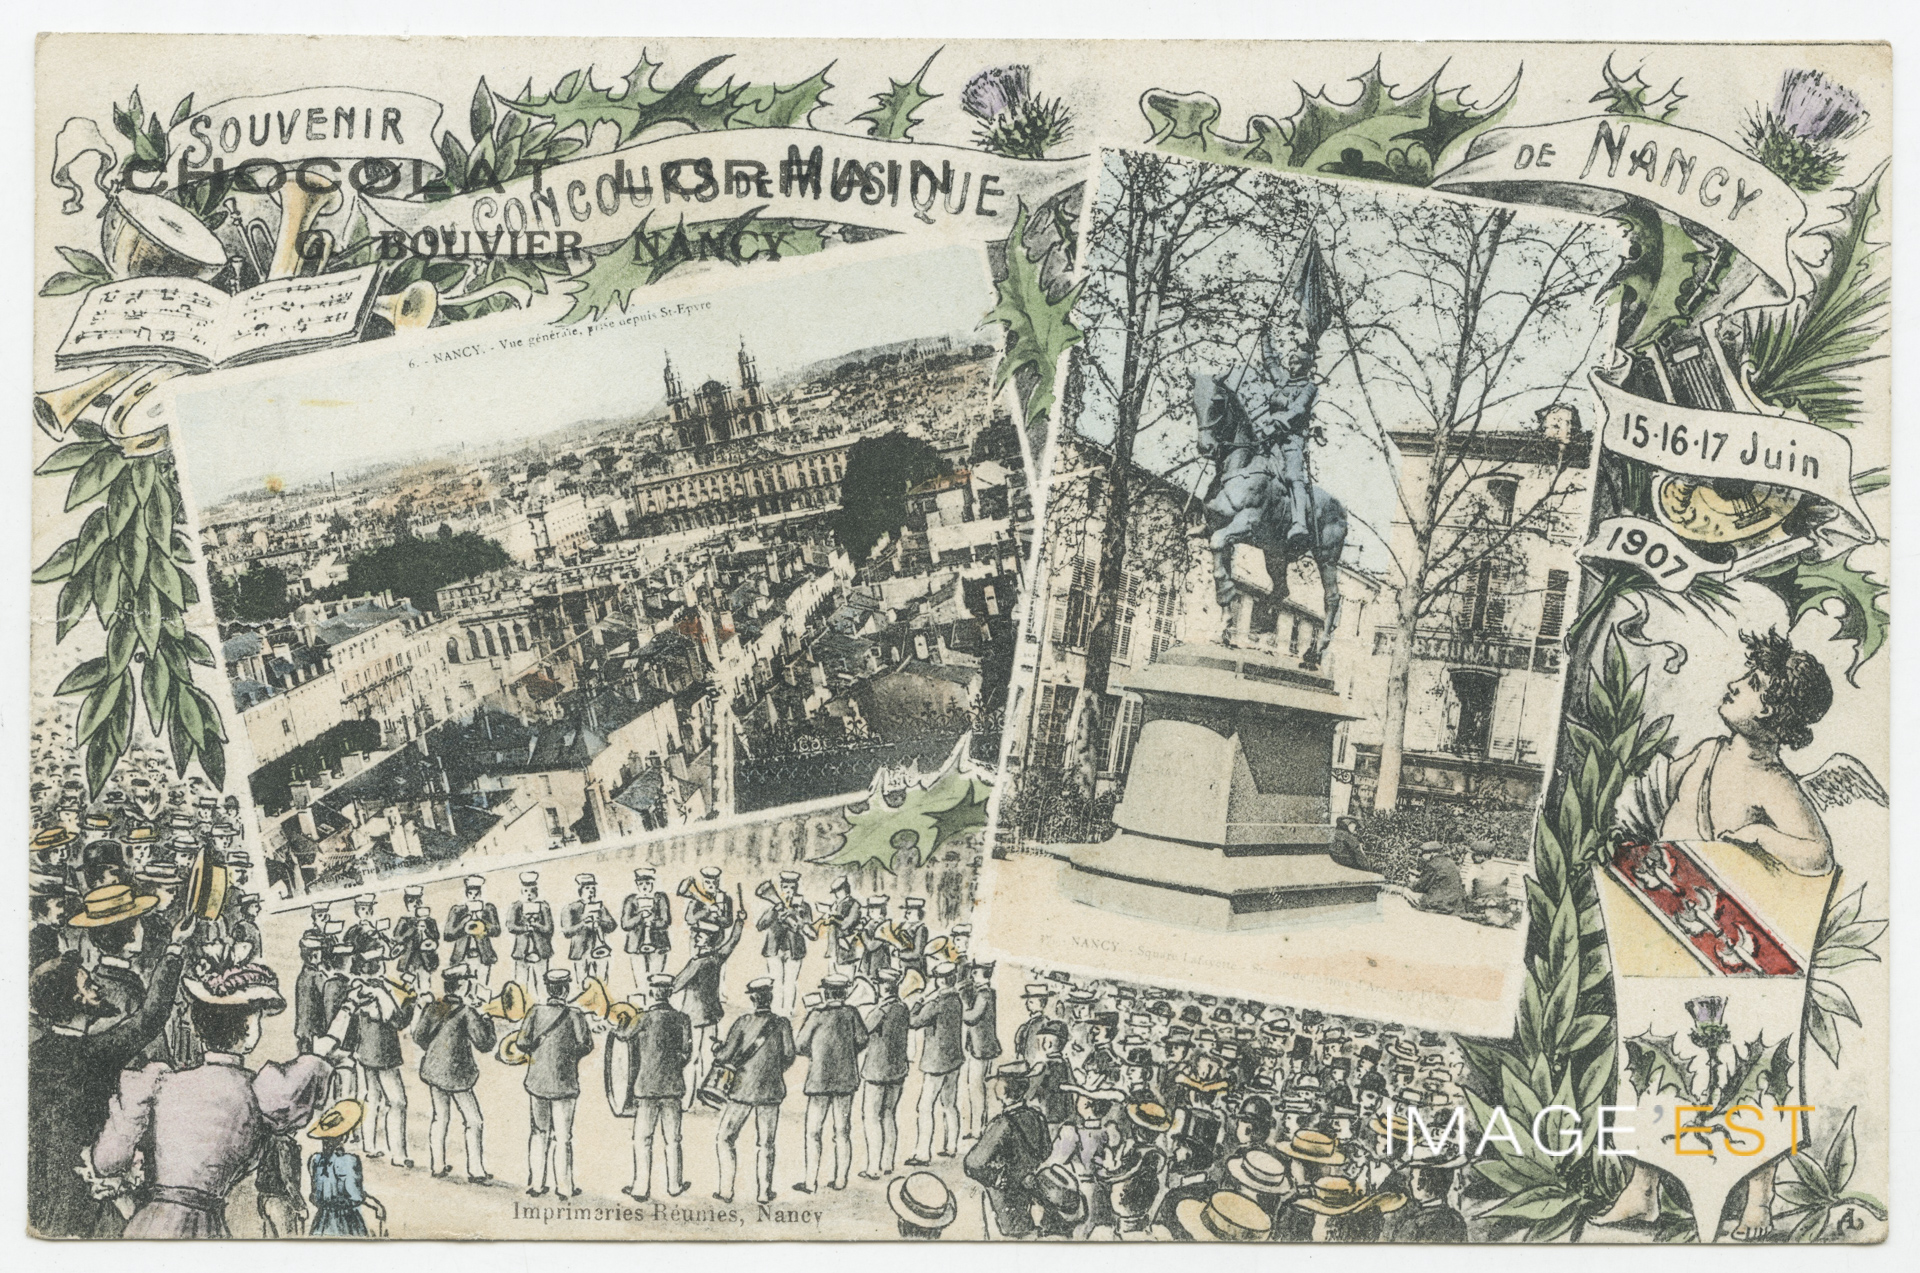 SOUVENIR
DU CONCOURS DE MUSIQUE
DE NANCY
CHOCOLAT LORRAIN
G. BOUVIER, NANCY
15·16·17 Juin
1907
6. - NANCY. - Vue générale, prise depuis St-Epvre
RESTAURANT
NANCY. - Square Lafayette
Imprimeries Réunies, Nancy
IMAGE'EST